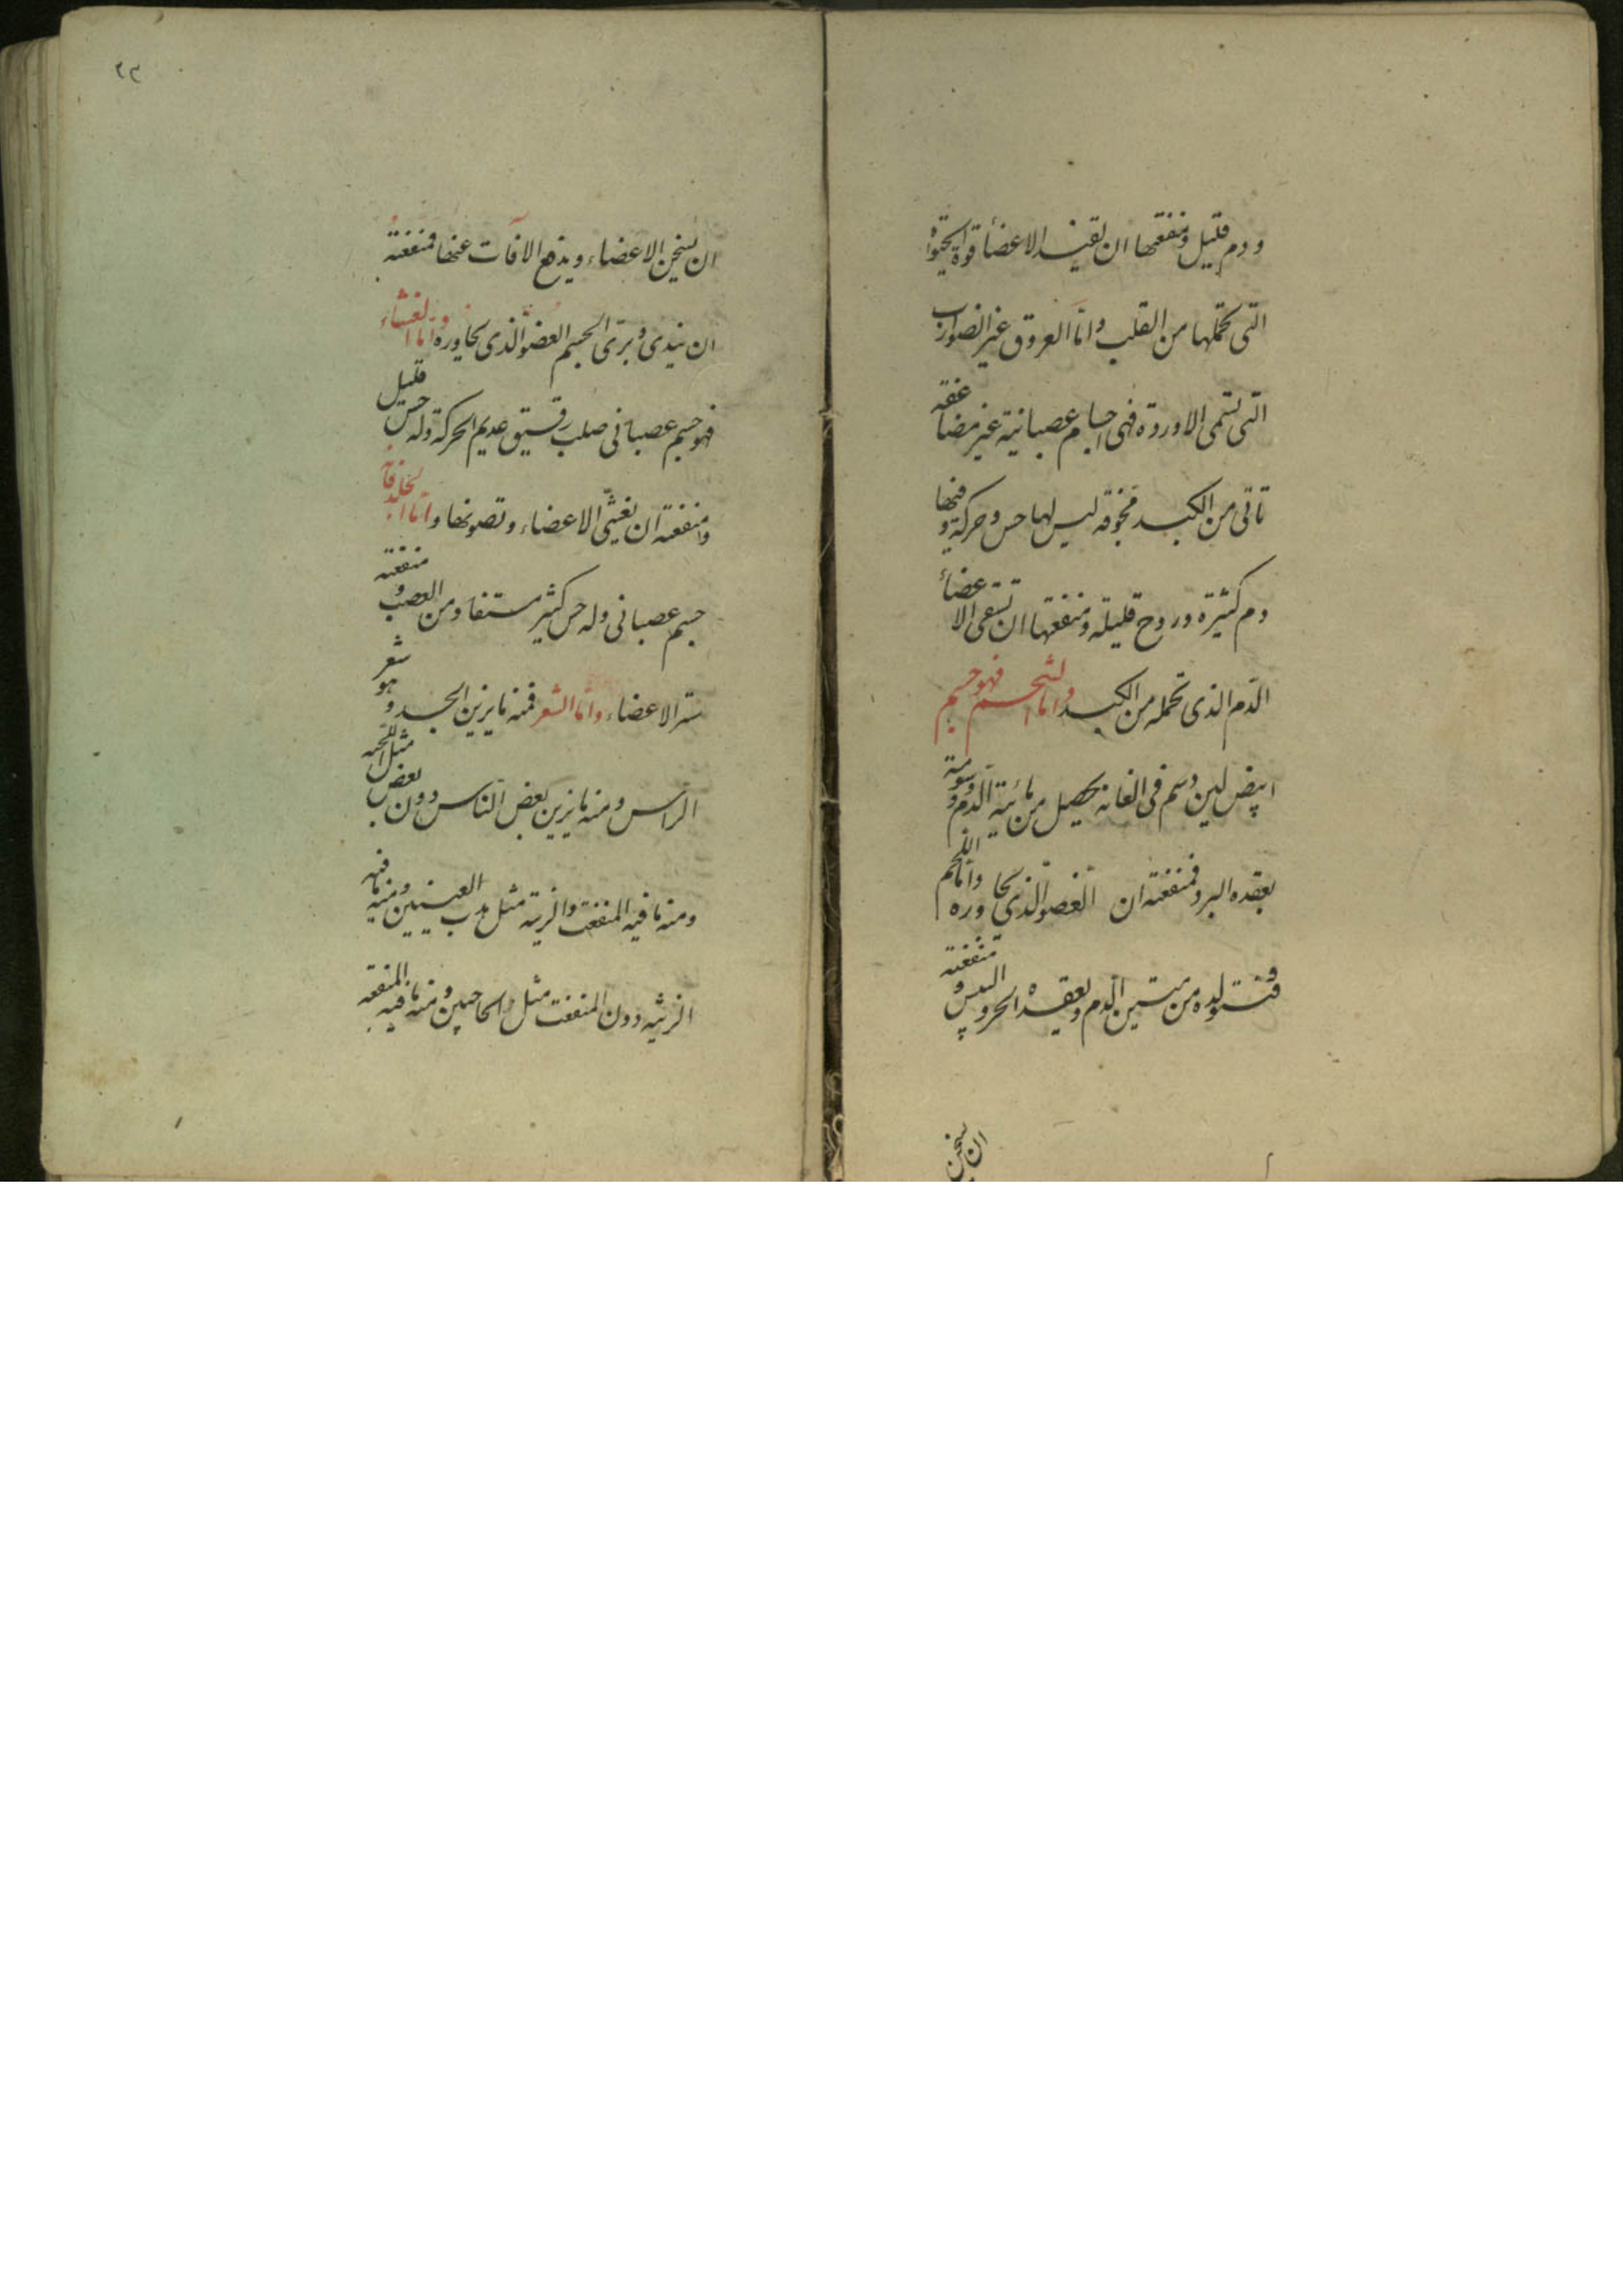 ودم قليل ومنفعتها ان تفيد الاعضاء قوة الحيوة
التى تحملها من القلب واما العروق غير الضوارب
التى تسمى الاوردة فهى اجسام عصبانية غير مضاعفة
تاتى من الكبد مجوفه ليس لها حس وحركة وفيها
دم كثيرة وروح قليلة ومنفعتها ان تسقى الاعضاء
الدم الذى تحمله من الكبد واما الشحم فهو جسم
ابيض لين دسم فى الغاية يحصل من مائية الدم ودسومة
يعقده البرد فمنفعته ان العضو الذى يجاوره واما اللحم
فتولده من متين الدم ويعقده الحر و اليبس و منفعته
ان يسخن
٢٣
ان يسخن الاعضاء ويدفع الافات عنها فمنفعته
ان يندى الجسم العضو الذى يجاوره واما الغشاء
فهو جسم عصبانى صلب رقيق عديم الحركة وله حس قليل
ومنفعته ان يغشى الاعضاء وتصونها واما الجلد فانه
جسم عصبانى وله حس كثير مستفاد من العصب ومنفعته
ستر الاعضاء واما الشعر فمنه ما يزين الجسد وهو شعر
الراس ومنه ما يزين بعض الناس دون بعض مثل اللحيه
ومنه ما فيه المنفعت والزينة مثل هدب العينين ومنه ما فيه
الزينه دون المنفعت مثل الحاجبين ومنه ما فيه المنفعه